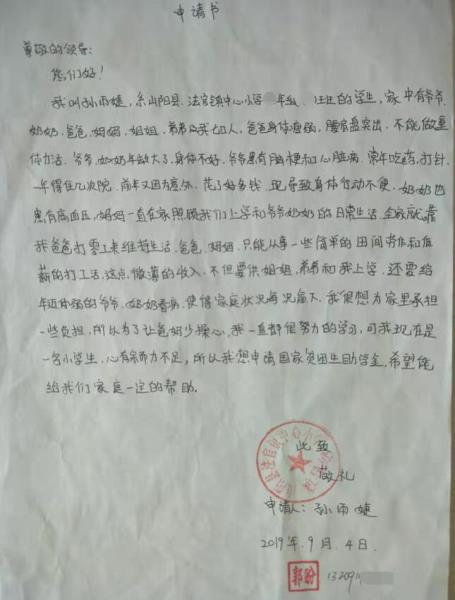 申请书
尊敬的领导:
您们好!
我叫孙雨婕,系山阳县法官镇中心小学 年级 住生的学生,家中有爷爷
奶奶、爸爸、妈妈、姐姐、弟弟及我七口人,爸爸身体虚弱,腰间盘突出,不能做重
体力活,爷爷、奶奶年龄大了,身体不好,爷爷患有脑梗和心脏病,常年吃药、打针
一年得住几次院,前年又因为意外,花了好多钱,现导致身体行动不便,奶奶也
患有高血压,妈妈一直在家照顾我们上学和爷爷奶奶的日常生活,全家就靠
我爸爸打零工来维持生活,爸爸、妈妈,只能从事一些简单的田间劳作和低
薪的打工活,这点微薄的收入,不但要供姐姐,弟弟和我上学,还要给
年迈体弱的爷爷、奶奶看病,使得家庭状况每况愈下,我很想为家里承担
一些负担,所以为了让爸妈少操心,我一直都很努力的学习,可我现在是
一名小学生,心有余而力不足,所以我想申请国家贫困生助学金,希望能
给我们家庭一定的帮助。
此致
敬礼
申请人:孙雨婕
2019年.9月.4日.
郭盼 13209